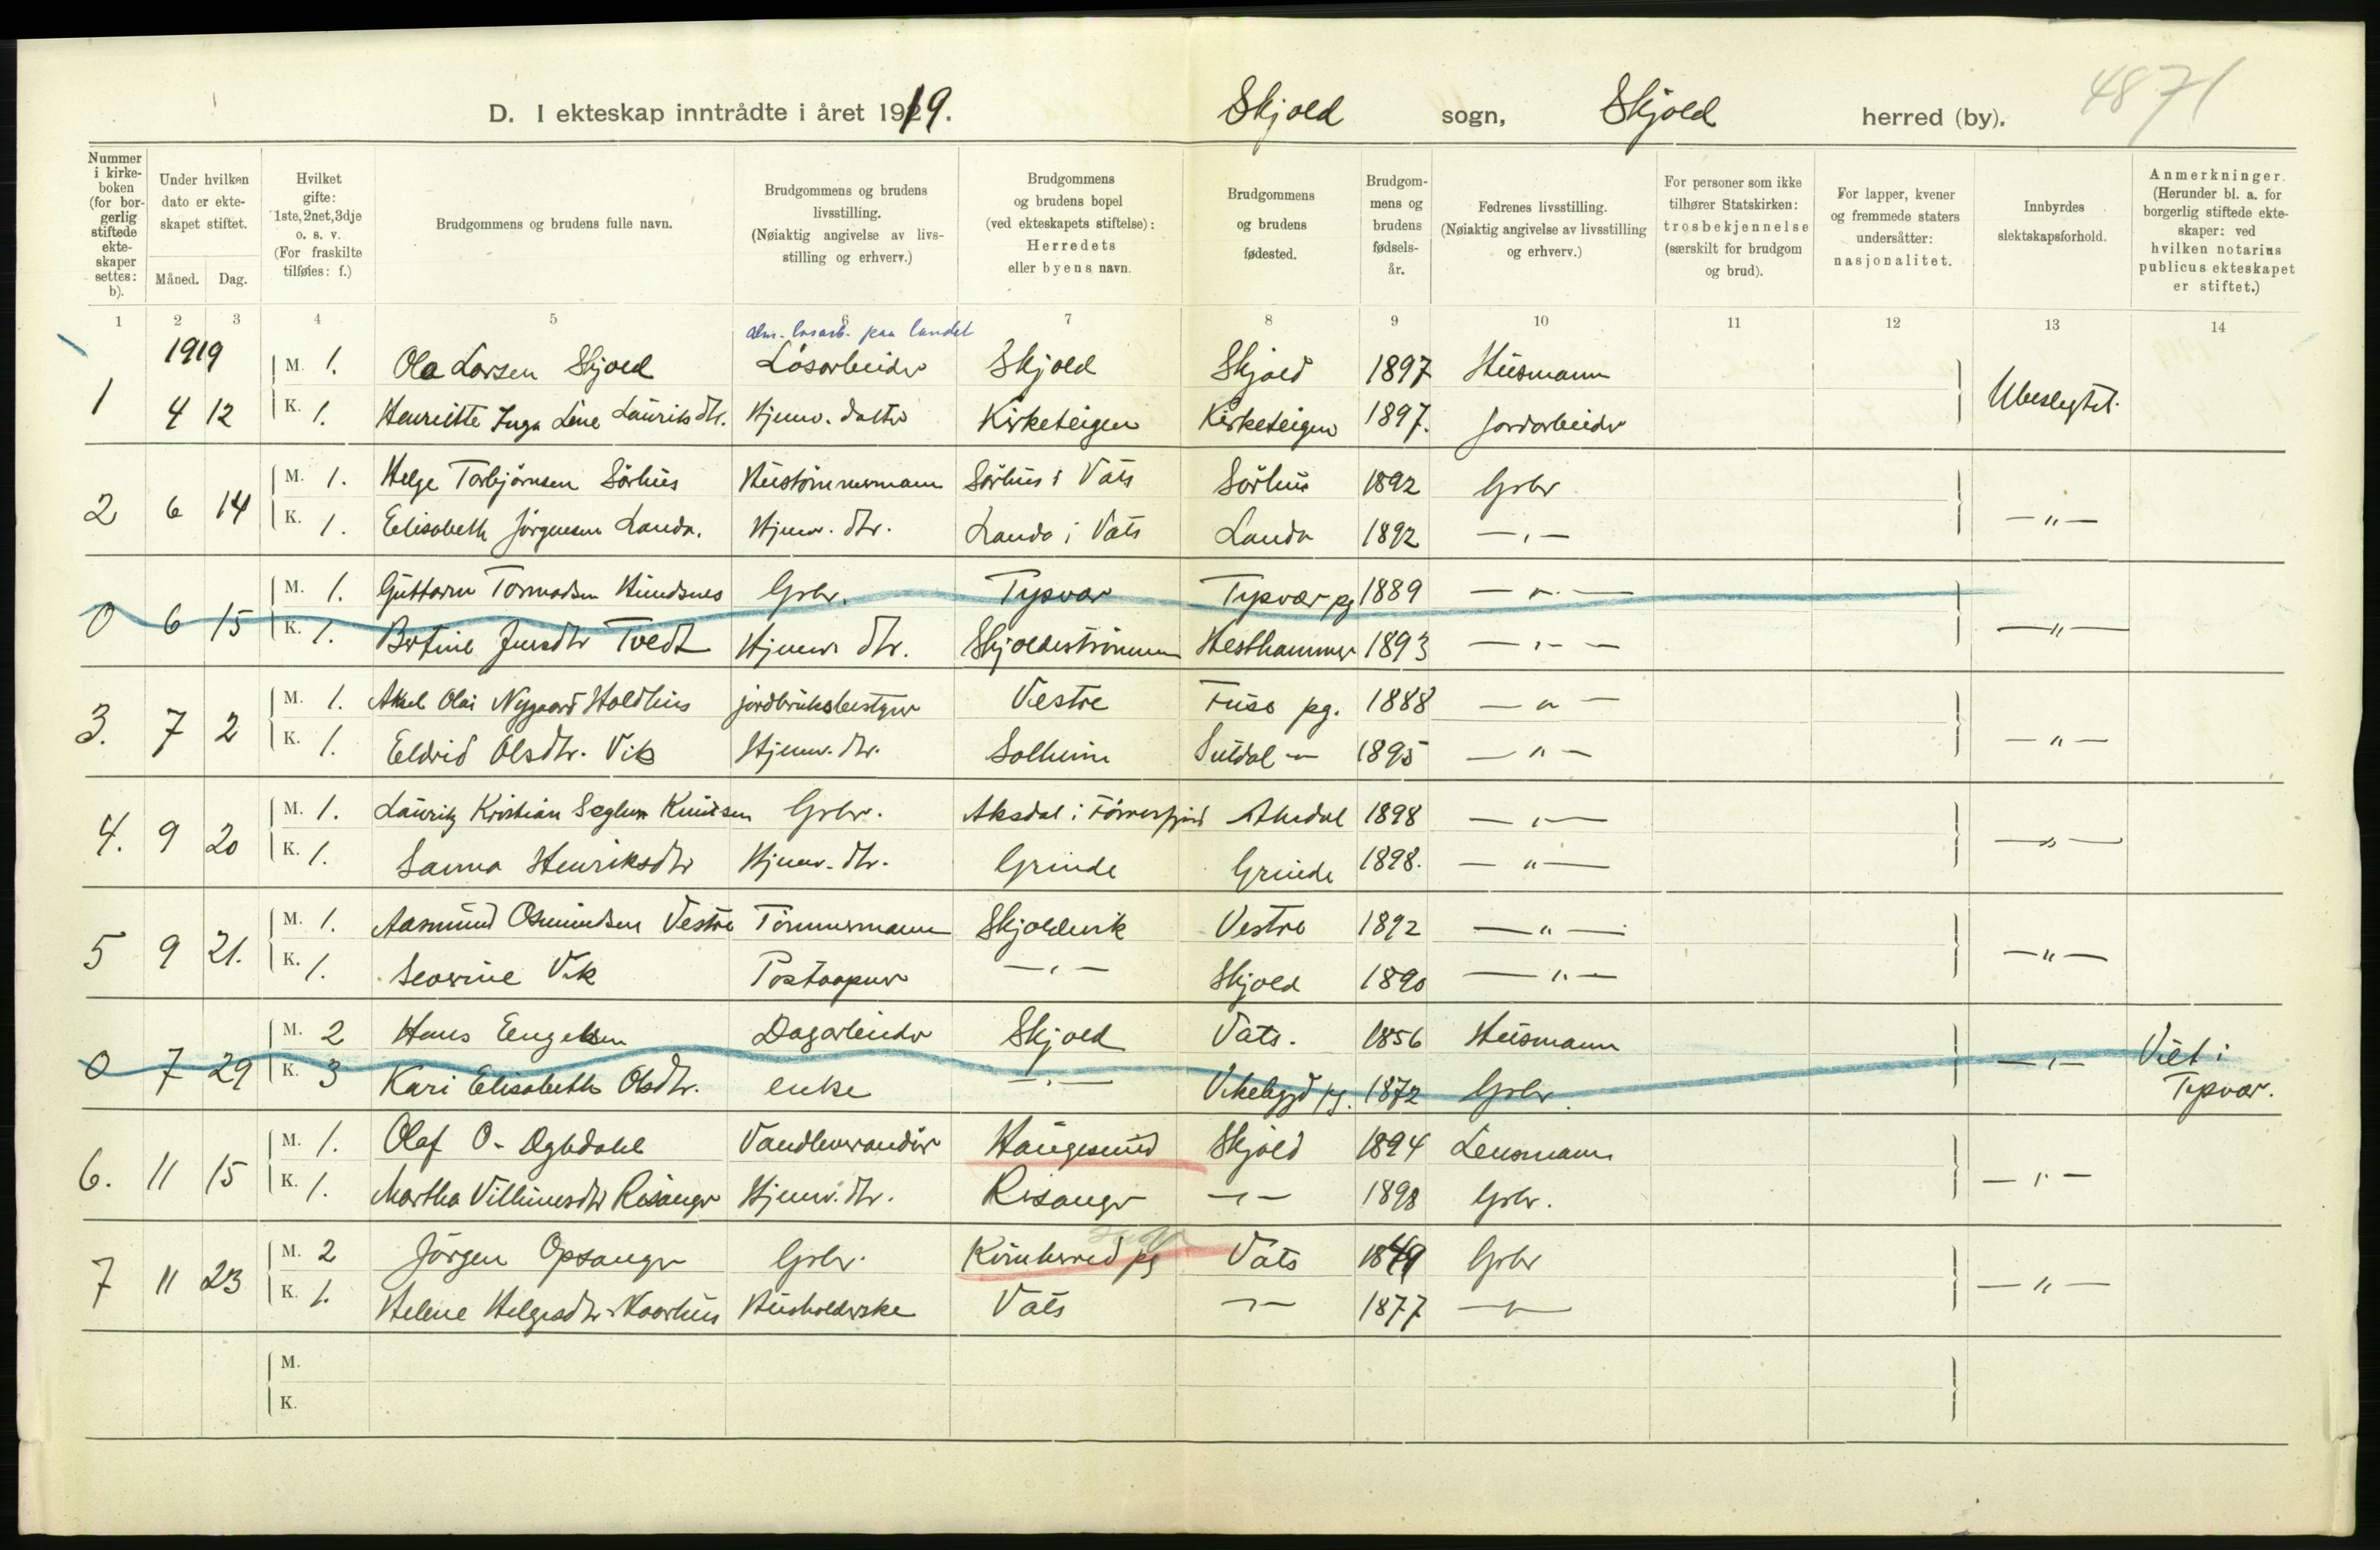 4871
D. I ekteskap inntrådte i året 1919. Skjold sogn, Skjold herred (by).
Nummer i kirke-boken (for bor-gerlig stiftede ekte-skaper settes: b).
Under hvilken dato er ekte-skapet stiftet.
Måned. Dag.
Hvilket gifte: 1ste, 2net, 3dje o. s. v. (For fraskilte tilføies: f.)
Brudgommens og brudens fulle navn.
Brudgommens og brudens livsstilling. (Nøiaktig angivelse av livs-stilling og erhverv.)
Brudgommens og brudens bopel (ved ekteskapets stiftelse): Herredets eller byens navn.
Brudgommens og brudens fødested.
Brudgom-mens og brudens fødsels-år.
Fedrenes livsstilling. (Nøiaktig angivelse av livsstilling og erhverv.)
For personer som ikke tilhører Statskirken: trosbekjennelse (særskilt for brudgom og brud).
For lapper, kvener og fremmede staters undersåtter: nasjonalitet.
Innbyrdes slektskapsforhold.
Anmerkninger. (Herunder bl. a. for borgerlig stiftede ekte-skaper: ved hvilken notarius publicus ekteskapet er stiftet.)
1 2 3 4 5 6 7 8 9 10 11 12 13 14
1919
alm. løsarb. paa landet
M. 1. Ola Larsen Skjold Løsarbeider Skjold Skjold 1897 Husmann
1 4 12 K. 1. Henriette Inga Line Lauritsdtr. Hjemv. datter Kirketeigen Kirketeigen 1897. Jordarbeider Ubeslegtet.
M. 1. Helge Torbjørnsen Sørhus Hustømmermann Sørhus i Vats Sørhus 1892 Grbr
2 6 14 K. 1. Elisabeth Jørgensen Landa. Hjemv. dtr. Landa i Vats Landa 1892 — " — — " —
M. 1. Guttorm Tormodsen Hundsnes Grbr. Tysvær Tysvær pg 1889 — " —
0 6 15 K. 1. Bertine Jensdtr Tvedt Hjemv. dtr. Skjoldestrømmen Hesthammer 1893 — " — — " —
M. 1. Aksel Olai Nygaard Holdhus jordbruksbestyrer Vestre Fuse pg. 1888 — " —
3. 7 2 K. 1. Eldrid Olsdtr. Vik Hjemv. dtr. Solheim Suldal — 1895 — " — — " —
M. 1. Lauritz Kristian Seglem Knutsen Grbr. Aksdal i Førresfjord Aksdal 1898 — " —
4. 9 20 K. 1. Sanna Henriksdtr Hjemv. dtr. Grinde Grinde 1898. — " — — " —
M. 1. Aasmund Osmundsen Vestre Tømmermann Skjoldevik Vestre 1892 — " —
5 9 21. K. 1. Severine Vik Postaapner — " — Skjold 1890 — " — — " —
M. 2 Hans Engelsen Dagarbeider Skjold Vats. 1856 Husmann
0 7 29 K. 3 Kari Elisabeth Olsdtr. enke — " — Vikebygd pg. 1872 Grbr. — " — Viet i Tysvær.
M. 1. Olaf O. Øgledahl Vandleverandør Haugesund Skjold 1894 Lensmann
6. 11 15 K. 1. Martha Villumsdtr Risanger Hjemv. dtr. Risanger — " — 1898 Grbr. — " —
M. 2 Jørgen Opsanger Grbr. Kvinherred pg Vats 1849 Grbr
7 11 23 K. 1. Helene Helgesdtr Haarhus Husholderske Vats — " — 1877 — " — — " —
M.
K.